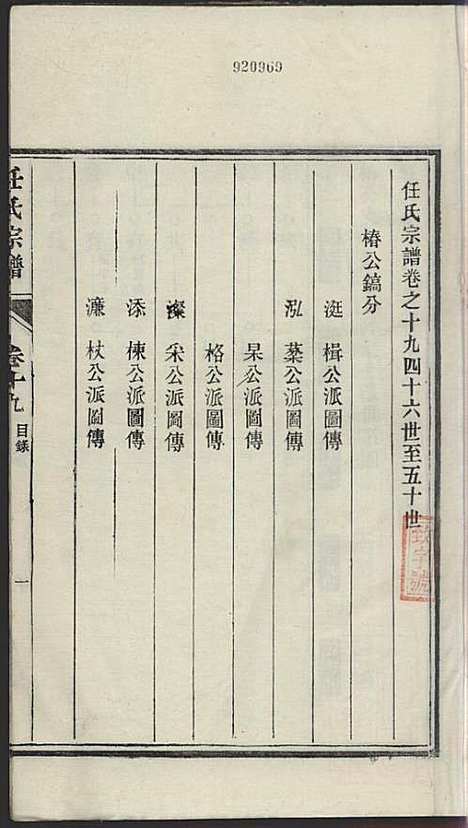 920969
任氏宗譜卷之十九四十六世至五十世
椿公鎬分
逛 楫公派圖傳
泓 蘂公派圖傳
杲公派圖傳
格公派圖傳
澯 采公派圖傳
添 棟公派圖傳
濂 杖公派圖傳
任氏宗譜 卷十九 目錄 一
致字號